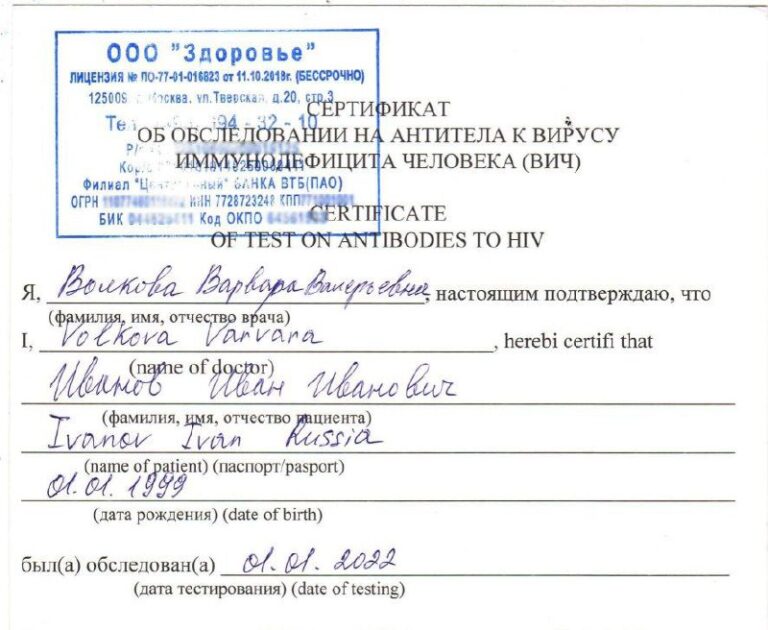 ООО "Здоровье"
ЛИЦЕНЗИЯ № ЛО-77-01-016823 от 11.10.2018г. (БЕССРОЧНО)
Москва, ул.Тверская, д.20, стр.3
94 - 32 - 10
Филиал БАНКА ВТБ(ПАО)
ОГРН ИНН 7728723248 КПП
БИК Код ОКПО
СЕРТИФИКАТ
ОБ ОБСЛЕДОВАНИИ НА АНТИТЕЛА К ВИРУСУ
ИММУНОДЕФИЦИТА ЧЕЛОВЕКА (ВИЧ)
CERTIFICATE
OF TEST ON ANTIBODIES TO HIV
Я, Волкова Варвара Валерьевна, настоящим подтверждаю, что
(фамилия, имя, отчество врача)
I, Volkova Varvara, herebi certifi that
(name of doctor)
Иванов Иван Иванович
(фамилия, имя, отчество пациента)
Ivanov Ivan Russia
(name of patient) (паспорт/pasport)
01.01.1999
(дата рождения) (date of birth)
был(а) обследован(а) 01.01.2022
(дата тестирования) (date of testing)